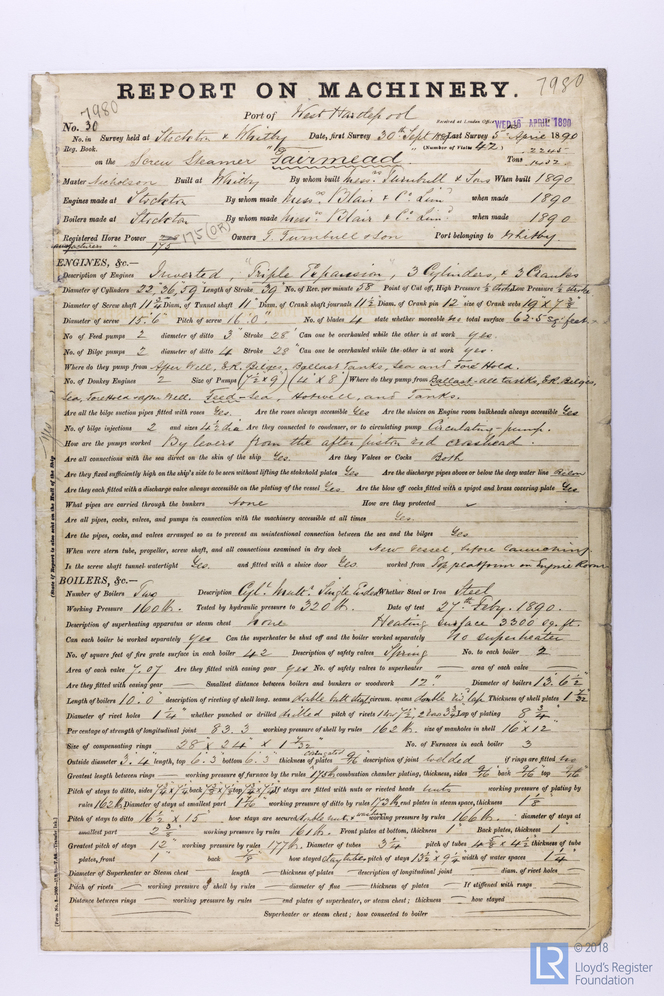 7980
REPORT ON MACHINERY.
7980
Port of West Hartlepool
Received at London Office WED. 16 APRIL 1890
No. 30
No. in Survey held at Stockton & Whitby Date, first Survey 30th Sept Last Survey 5th April 1890
Reg. Book. (Number of Visits 42)
on the Screw Steamer "Fairmead" Tons
Master Nicholson Built at Whitby By whom built Messrs Turnbull & Sons When built 1890
Engines made at Stockton By whom made Messrs Blair & Co. Lim. when made 1890
Boilers made at Stockton By whom made Messrs Blair & Co. Lim. when made 1890
Registered Horse Power 175 175 (OR) Owners T. Turnbull & Son Port belonging to Whitby
ENGINES, &c.—
Description of Engines Inverted, "Triple Expansion", 3 Cylinders, & 3 Cranks
Diameter of Cylinders 22, 36, 59 Length of Stroke 39 No. of Rev. per minute 58 Point of Cut off, High Pressure Low Pressure
Diameter of Screw shaft 11 3/4 Diam. of Tunnel shaft 11" Diam. of Crank shaft journals 11 1/2 Diam. of Crank pin 12" size of Crank webs
Diameter of screw 15.6" Pitch of screw 16.0" No. of blades 4 state whether moveable no total surface 62.5 sq. feet.
No. of Feed pumps 2 diameter of ditto 3" Stroke 28" Can one be overhauled while the other is at work yes.
No. of Bilge pumps 2 diameter of ditto 4 Stroke 28" Can one be overhauled while the other is at work yes.
Where do they pump from After Well, E.R. Bilges, Ballast Tanks, Sea and Fore Hold.
No. of Donkey Engines 2 Size of Pumps (7 1/2 x 9) (4" x 8") Where do they pump from Ballast-all tanks, E.R. Bilges,
Sea, Fore Hold & After Well. Feed-Sea, Hotwell, and Tanks.
Are all the bilge suction pipes fitted with roses Yes. Are the roses always accessible Yes Are the sluices on Engine room bulkheads always accessible Yes
No. of bilge injections 2 and sizes 4 1/2 dia Are they connected to condenser, or to circulating pump Circulating-pump.
How are the pumps worked By levers from the after piston rod crosshead.
Are all connections with the sea direct on the skin of the ship Yes. Are they Valves or Cocks Both
Are they fixed sufficiently high on the ship's side to be seen without lifting the stokehold plates Yes Are the discharge pipes above or below the deep water line Below
Are they each fitted with a discharge valve always accessible on the plating of the vessel Yes Are the blow off cocks fitted with a spigot and brass covering plate Yes
What pipes are carried through the bunkers None How are they protected
Are all pipes, cocks, valves, and pumps in connection with the machinery accessible at all times Yes.
Are the pipes, cocks, and valves arranged so as to prevent an unintentional connection between the sea and the bilges Yes
When were stern tube, propeller, screw shaft, and all connections examined in dry dock New vessel, before launching.
Is the screw shaft tunnel watertight Yes. and fitted with a sluice door Yes. worked from Top platform in Engine Room
BOILERS, &c.—
Number of Boilers Two Description Cyl. Mult. Single Ended Whether Steel or Iron Steel
Working Pressure 160 lb. Tested by hydraulic pressure to 320 lb. Date of test 27th Feby. 1890.
Description of superheating apparatus or steam chest None Heating Surface 3300 sq. ft.
Can each boiler be worked separately yes Can the superheater be shut off and the boiler worked separately No superheater
No. of square feet of fire grate surface in each boiler 42 Description of safety valves Spring No. to each boiler 2
Area of each valve 7.07 Are they fitted with easing gear yes No. of safety valves to superheater — area of each valve —
Are they fitted with easing gear — Smallest distance between boilers and bunkers or woodwork 12" Diameter of boilers 13.6 1/2
Length of boilers 10.0" description of riveting of shell long. seams double butt strap circum. seams double riv. lap Thickness of shell plates 1 7/32
Diameter of rivet holes 1 1/4 whether punched or drilled drilled pitch of rivets Lap of plating 8 3/4
Percentage of strength of longitudinal joint 83.3 working pressure of shell by rules 162 lb. size of manholes in shell 16 x 12"
Size of compensating rings 28 x 24 x 1 7/32 No. of Furnaces in each boiler 3
Outside diameter 3.4" length, top 6.3 bottom 6.3 thickness of plates corrugated 9/16 description of joint welded if rings are fitted no
Greatest length between rings — working pressure of furnace by the rules 175 lb combustion chamber plating, thickness, sides 9/16 back 9/16 top 9/16
Pitch of stays to ditto, sides back top If stays are fitted with nuts or riveted heads nuts working pressure of plating by
rules 162 lb. Diameter of stays at smallest part working pressure of ditto by rules 173 lb. end plates in steam space, thickness 1 1/8
Pitch of stays to ditto 16 1/2 x 15" how stays are secured double nuts & washers working pressure by rules 166 lb. diameter of stays at
smallest part 2 3/8 working pressure by rules 161 lb. Front plates at bottom, thickness 1" Back plates, thickness 1"
Greatest pitch of stays 12" working pressure by rules 177 lb. Diameter of tubes 3 1/4 pitch of tubes thickness of tube
plates, front 1" back 7/8 how stayed stay tubes pitch of stays 13 1/2 x 9 1/4 width of water spaces 1 1/4
Diameter of Superheater or Steam chest — length — thickness of plates — description of longitudinal joint — diam. of rivet holes —
Pitch of rivets — working pressure of shell by rules — diameter of flue — thickness of plates — If stiffened with rings —
Distance between rings — working pressure by rules — end plates of superheater, or steam chest; thickness — how stayed —
Superheater or steam chest; how connected to boiler —
© 2018
LR Lloyd's Register
Foundation